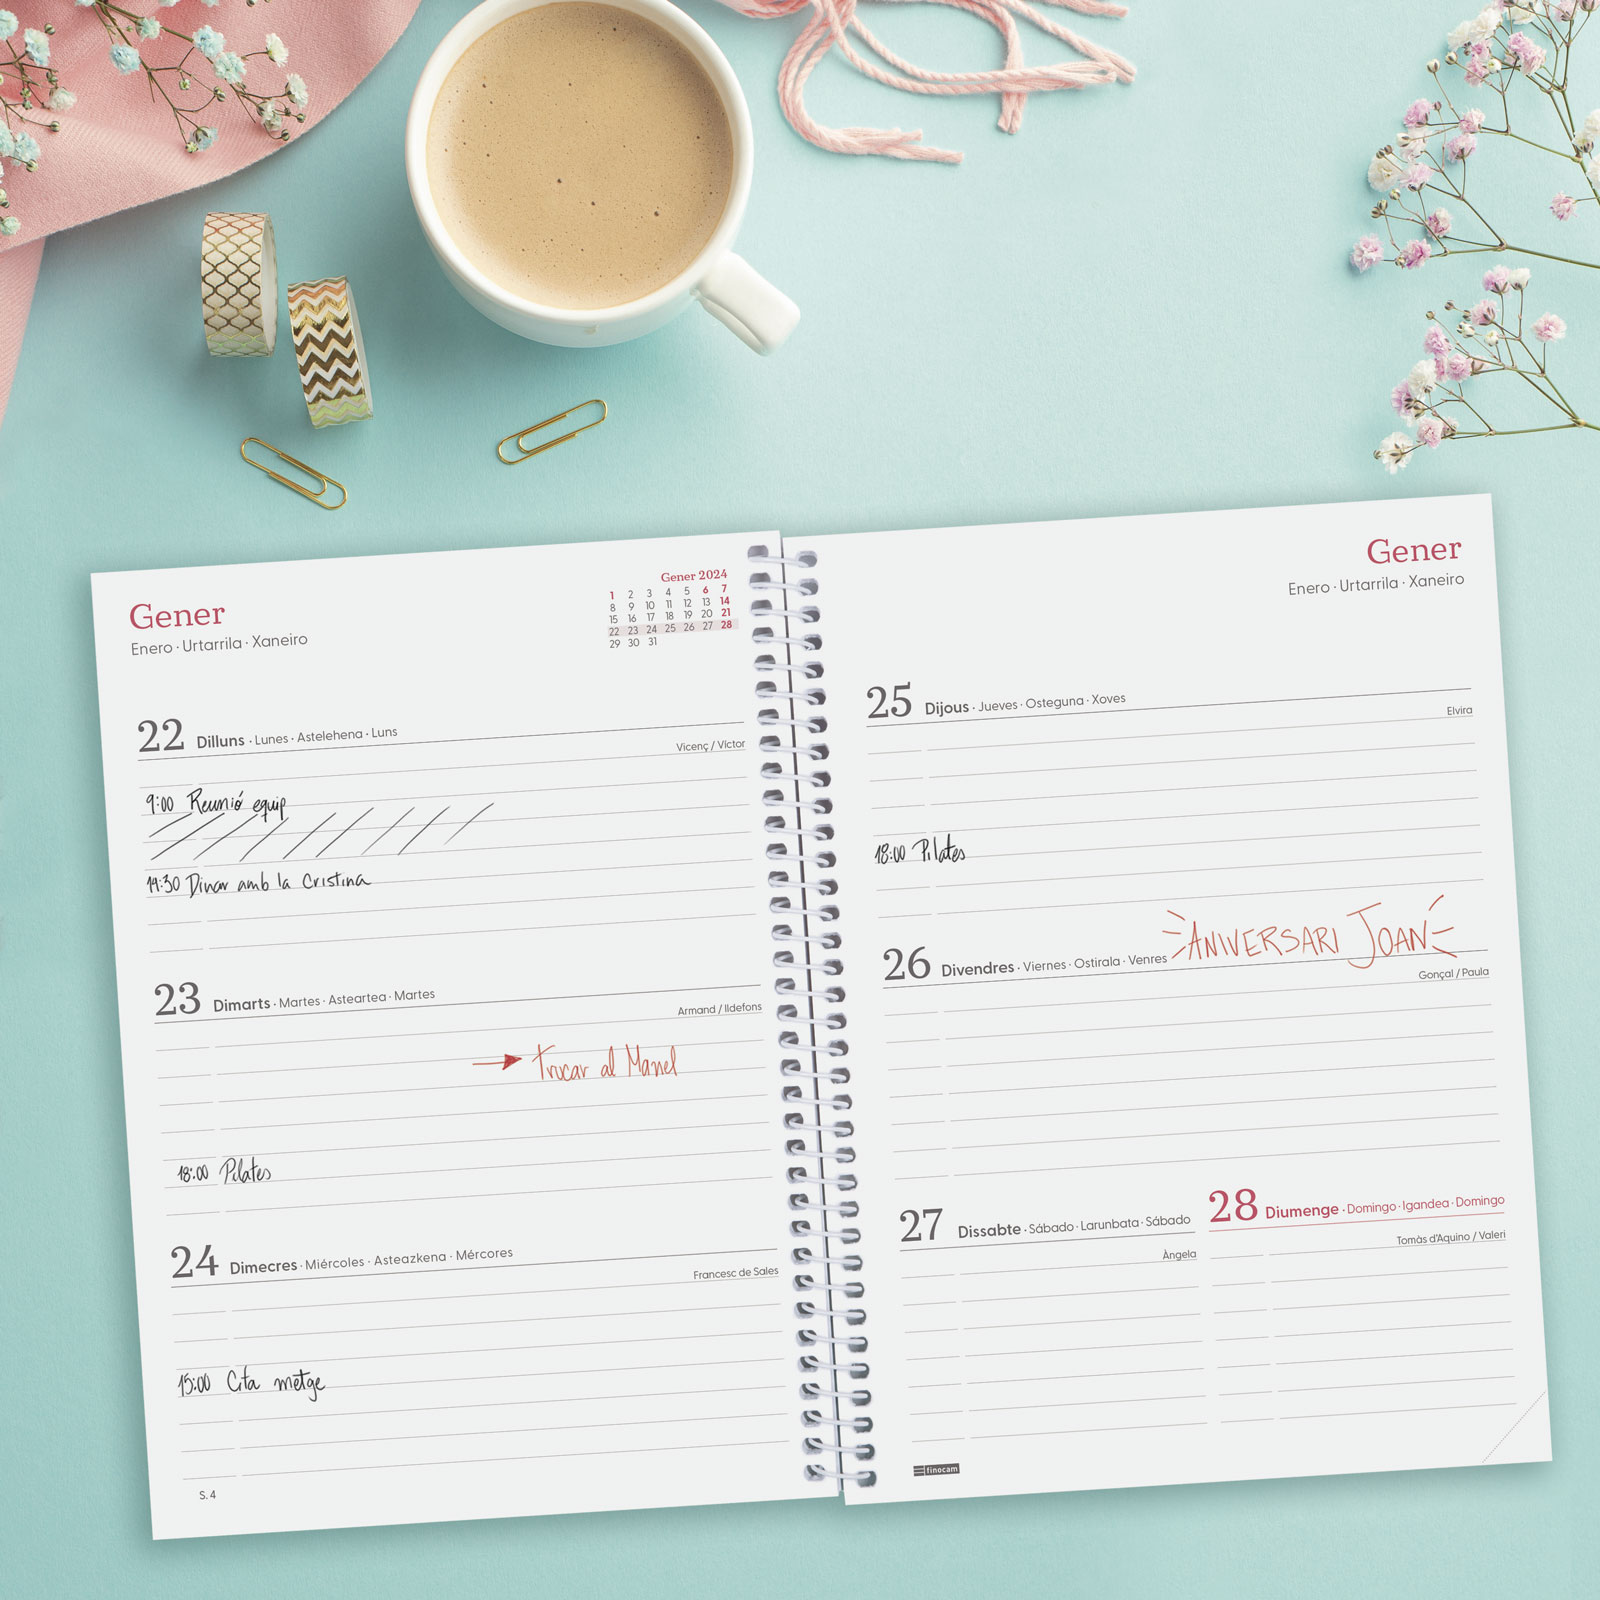 Gener
Enero · Urtarrila · Xaneiro
Gener 2024
1 2 3 4 5 6 7
8 9 10 11 12 13 14
15 16 17 18 19 20 21
22 23 24 25 26 27 28
29 30 31
22 Dilluns · Lunes · Astelehena · Luns
Vicenç / Víctor
9:00 Reunió equip
14:30 Dinar amb la Cristina
23 Dimarts · Martes · Asteartea · Martes
Armand / Ildefons
Trucar al Manel
18:00 Pilates
24 Dimecres · Miércoles · Asteazkena · Mércores
Francesc de Sales
15:00 Cita metge
S. 4
Gener
Enero · Urtarrila · Xaneiro
25 Dijous · Jueves · Osteguna · Xoves
Elvira
18:00 Pilates
26 Divendres · Viernes · Ostirala · Venres ANIVERSARI JOAN
Gonçal / Paula
27 Dissabte · Sábado · Larunbata · Sábado
Àngela
28 Diumenge · Domingo · Igandea · Domingo
Tomàs d'Aquino / Valeri
finocam